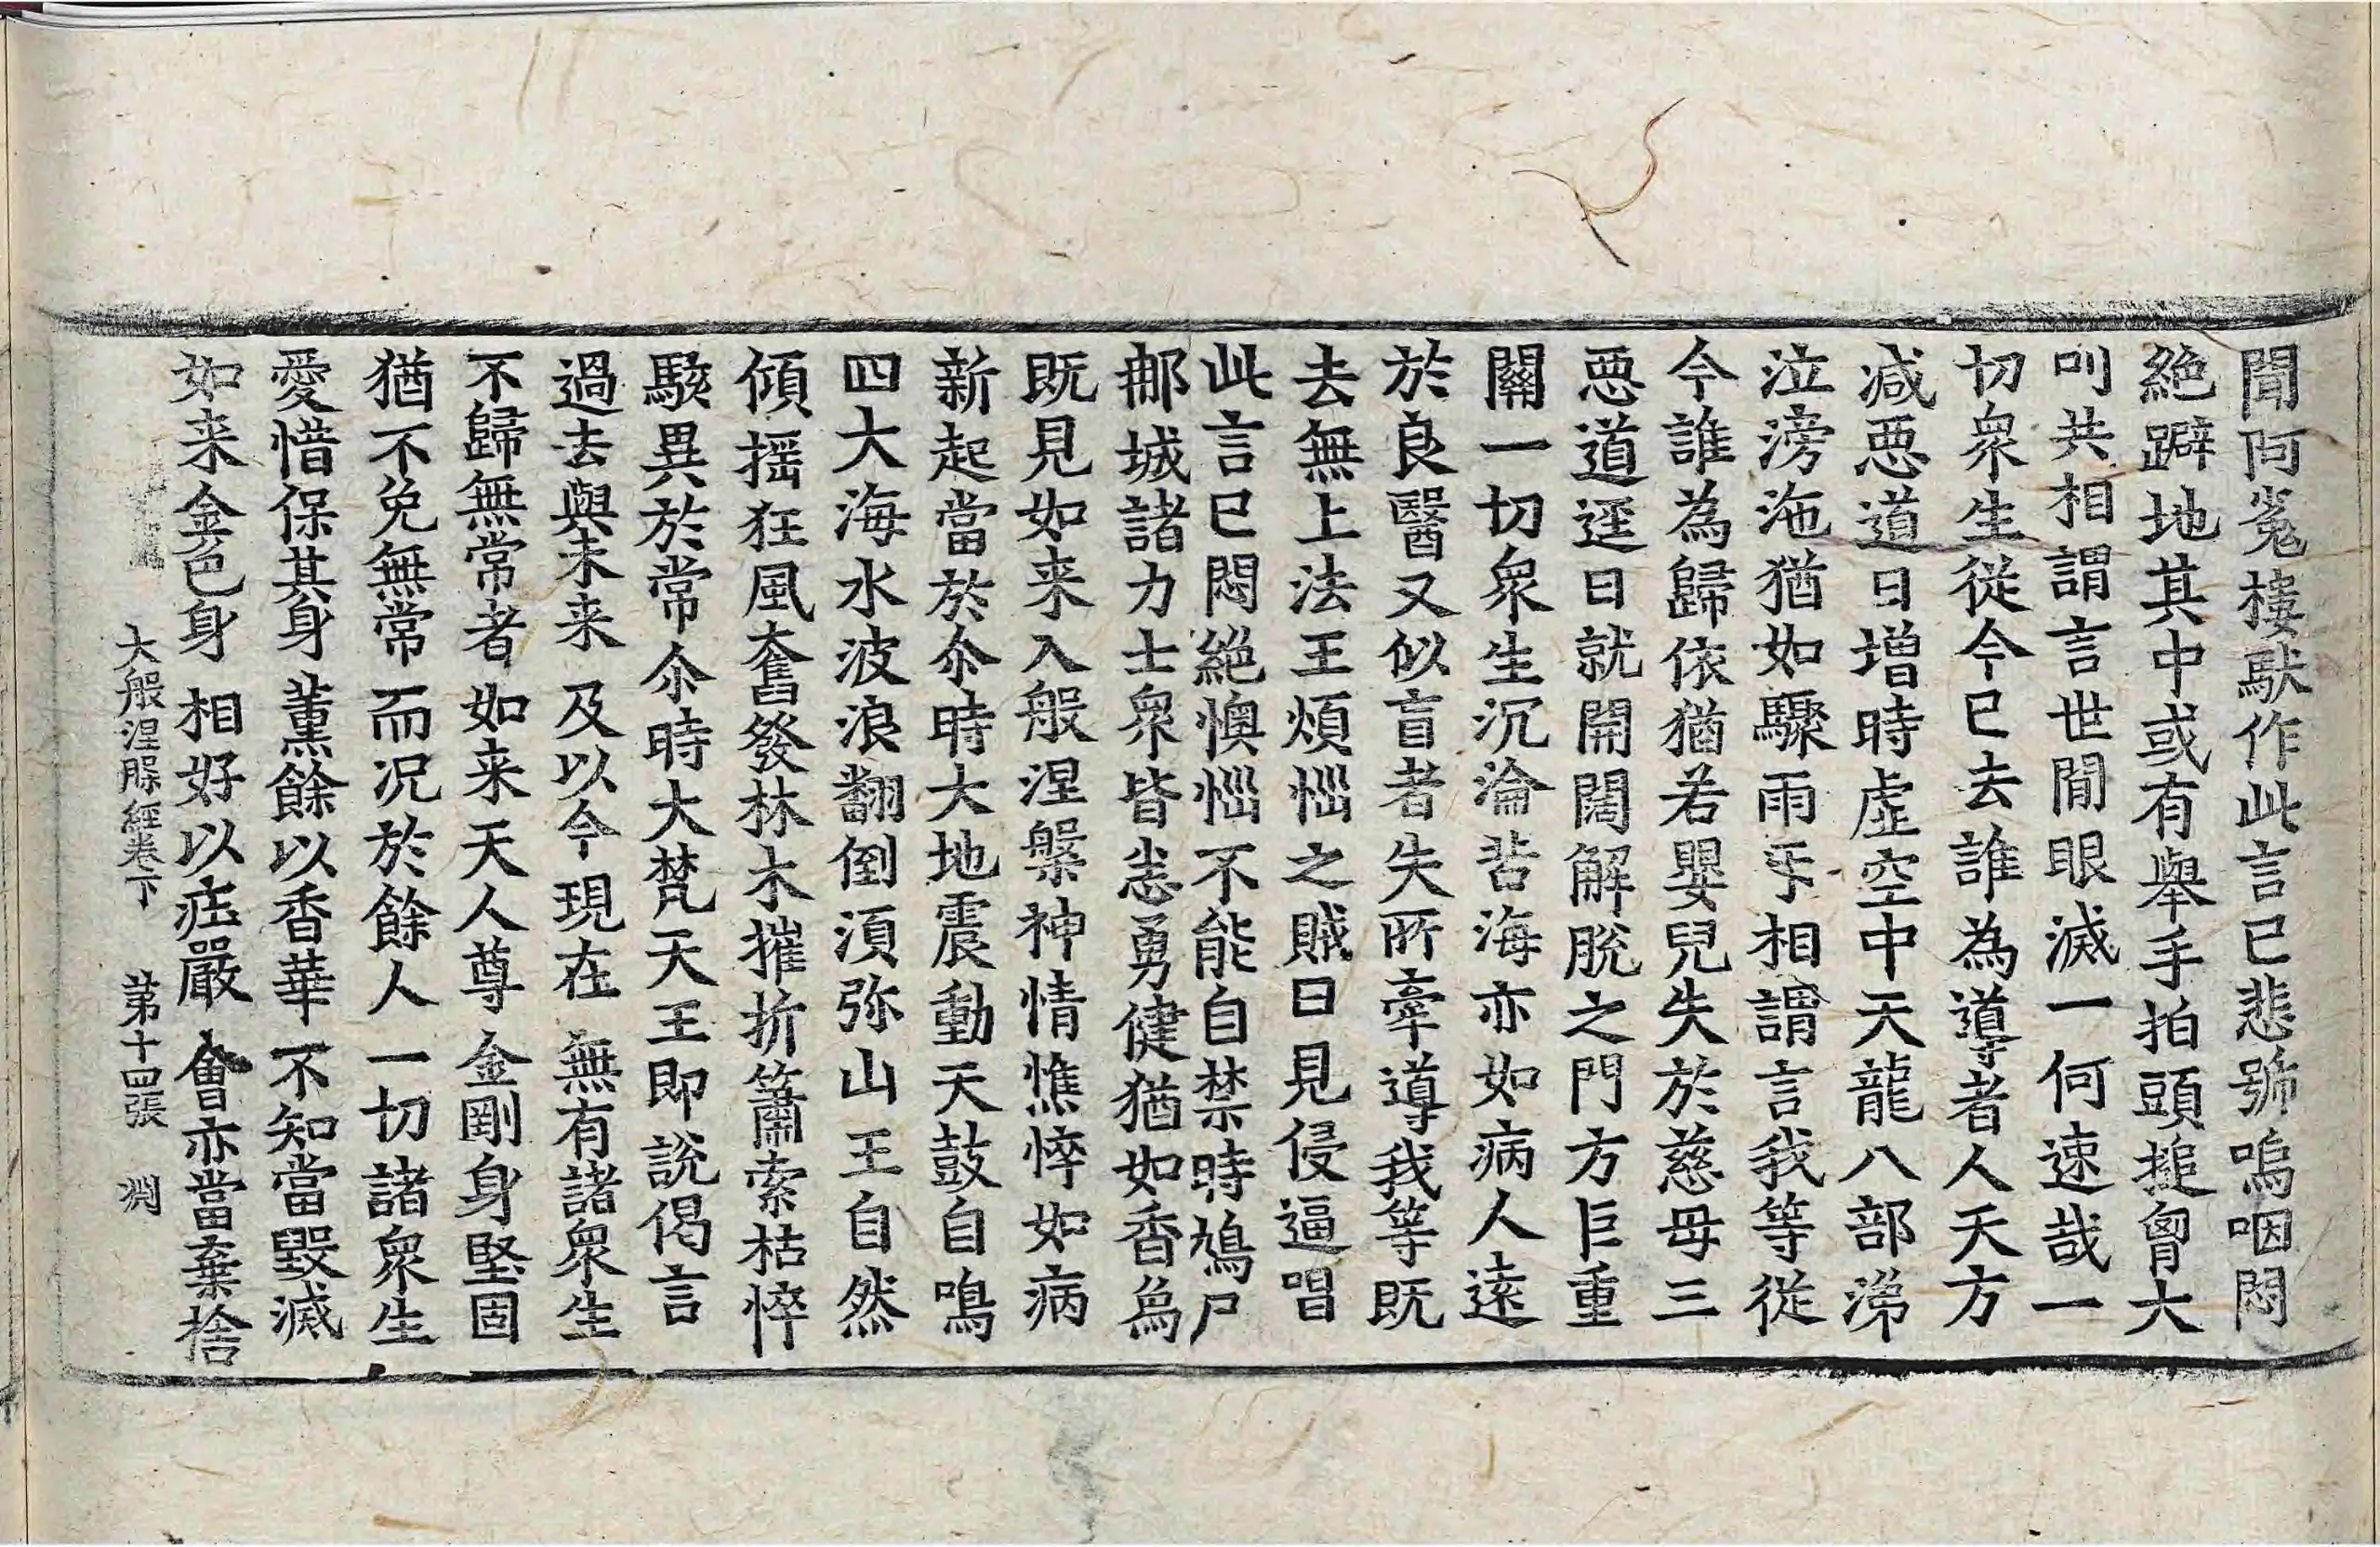 聞阿㝹樓馱作此言已悲號嗚咽悶
絶躃地其中或有舉手拍頭搥𦙄大
叫共相謂言世閒眼滅一何速哉一
切衆生從今已去誰為導者人天方
减惡道日增時虛空中天龍八部涕
泣滂沲猶如驟雨㸦相謂言我等從
今誰為歸依猶若嬰兒失於慈母三
惡道逕日就開闊解脫之門方巨重
關一切衆生沉淪苦海亦如病人遠
於良醫又似盲者失所牽導我等既
去無上法王煩惱之賊日見侵逼唱
此言已悶絶懊惱不能自禁時鳩尸
那城諸力士衆皆悉勇健猶如香爲
既見如来入般涅槃神情憔悴如病
新起當於尒時大地震動天鼓自鳴
四大海水波浪翻倒湏弥山王自然
傾搖狂風奮發林木摧折簫索枯悴
駭異於常尒時大梵天王即說偈言
過去與未来 及以今現在 無有諸衆生
不歸無常者 如来天人尊 金剛身堅固
猶不免無常 而况於餘人 一切諸衆生
愛惜保其身 薫餘以香華 不知當毀滅
如来金色身 相好以㽵嚴 會亦當棄捨
大般涅槃經卷下 第十四張 渕